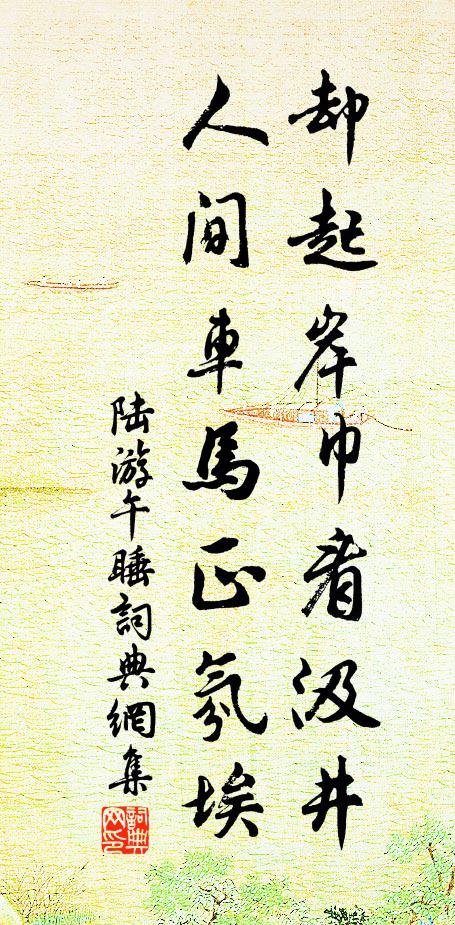 却起岸巾看汲井
人间車馬正氛埃
陆游午睡詞典網集
詞典
网印